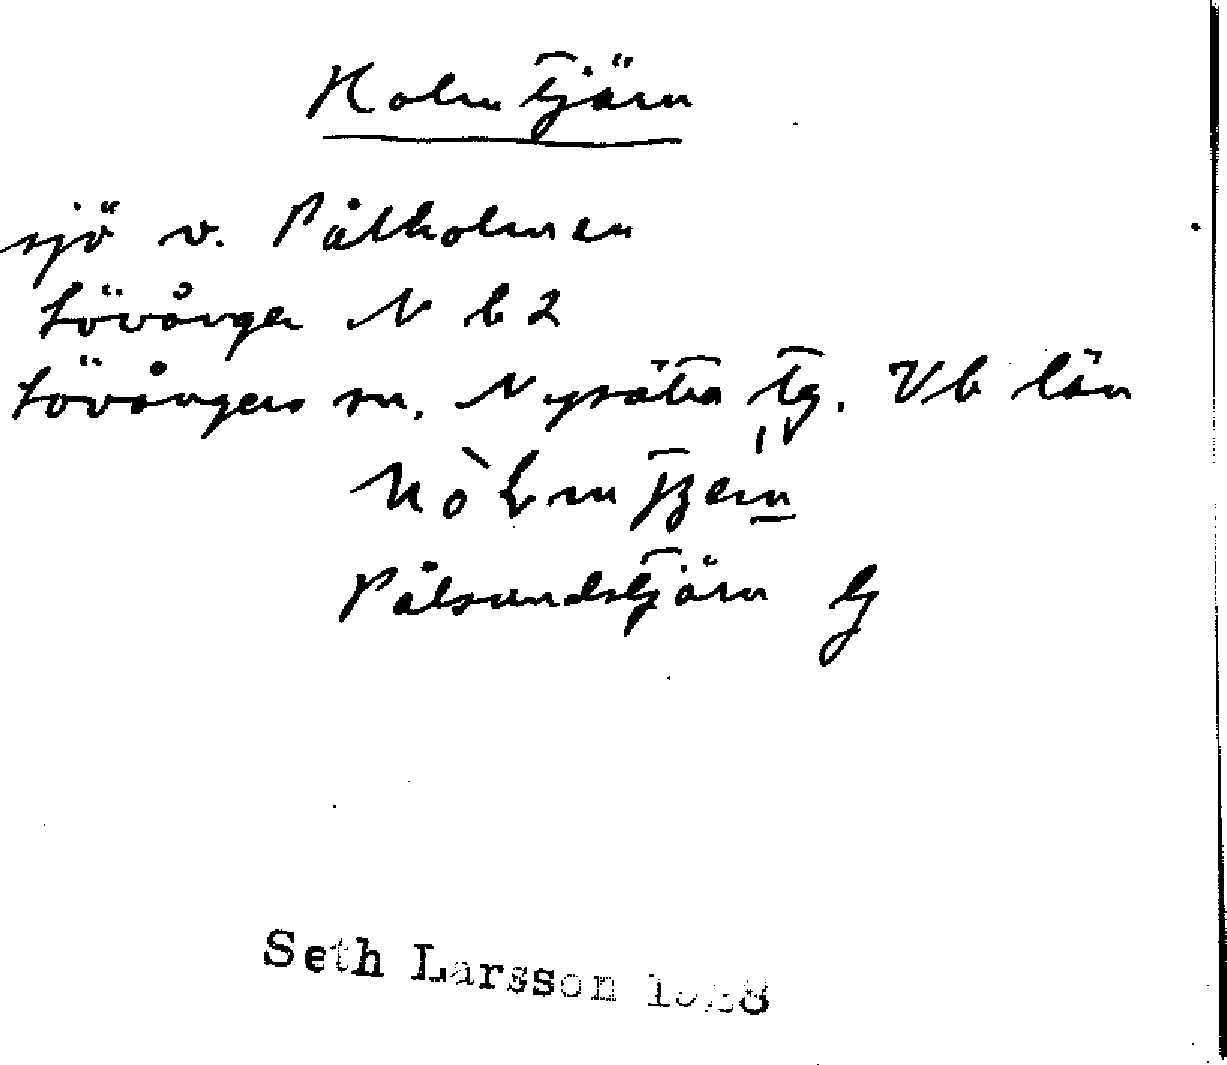 Holmtjärn
sjö v. Pålholmen
Lövånger N b 2
Lövångers sn. Nysätra tg. Vb län
Pålsundstjärn
Seth Larsson